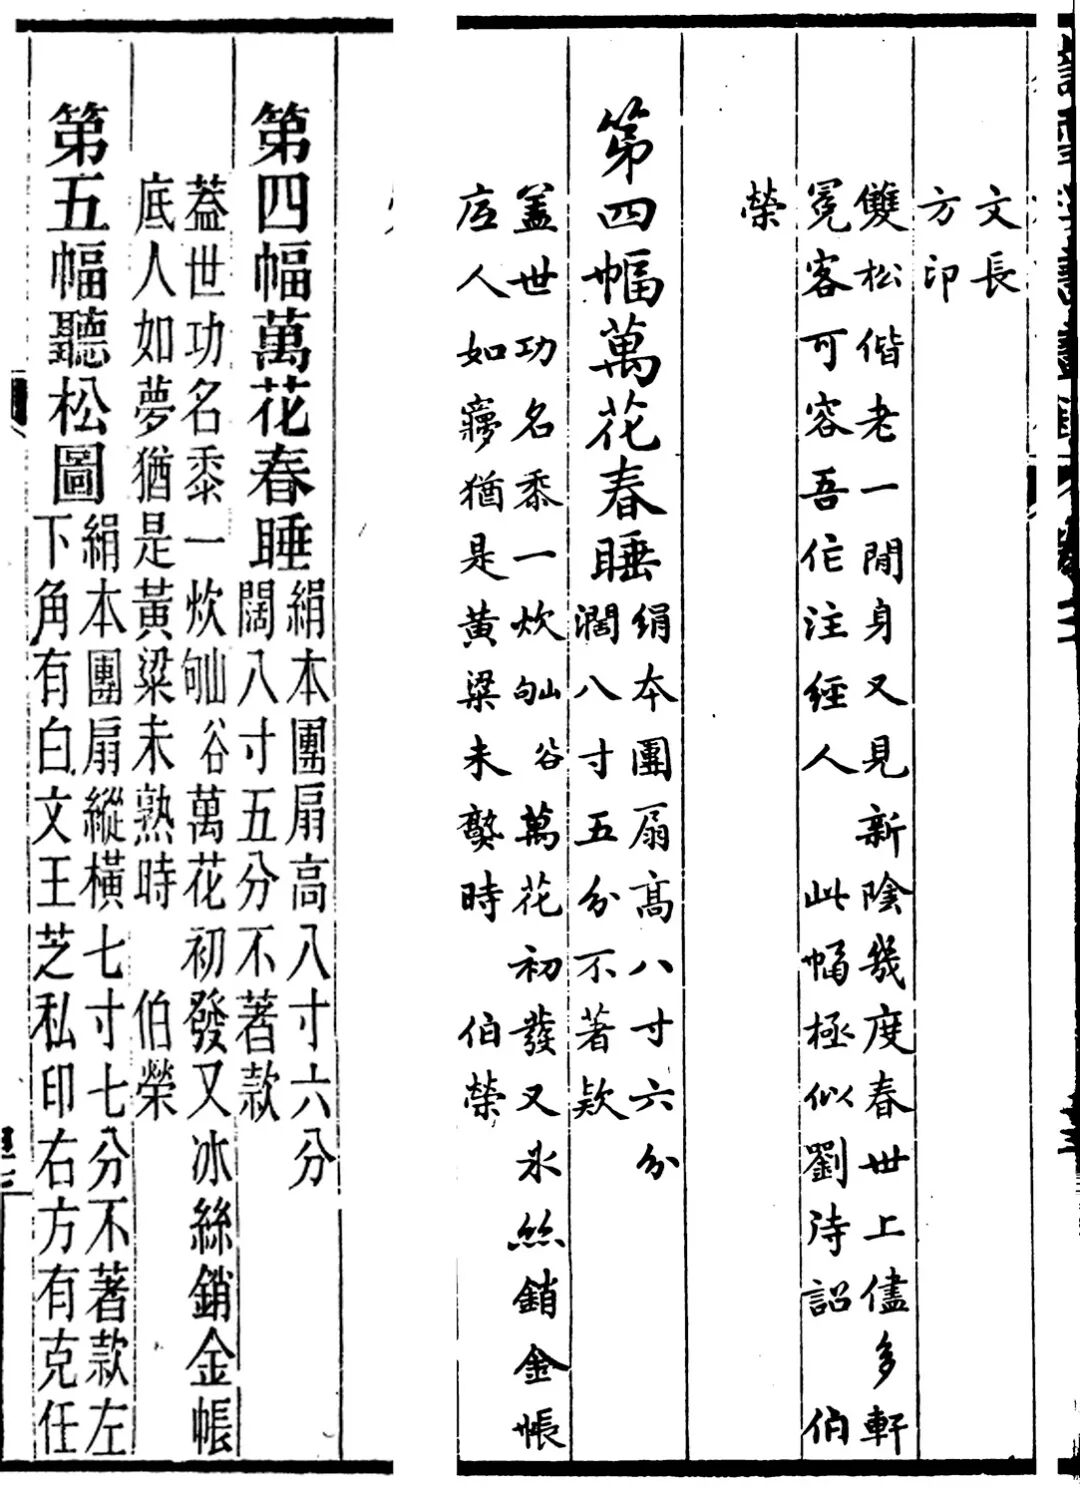 文長
方印
雙松偕老一閒身又見新陰幾度春世上儘多軒
冕客可容吾作注經人 此幅極似劉待詔 伯
榮
第四幅萬花春睡
絹本團扇高八寸六分
濶八寸五分不著欵
蓋世功名黍一炊谷萬花初發又氷絲銷金帳
底人如夢猶是黃粱未熟時 伯榮
第四幅萬花春睡
絹本團扇高八寸六分
闊八寸五分不著款
蓋世功名黍一炊谷萬花初發又冰絲銷金帳
底人如夢猶是黃粱未熟時 伯榮
第五幅聽松圖
絹本團扇縱橫七寸七分不著款左
下角有白文王芝私印右方有克任